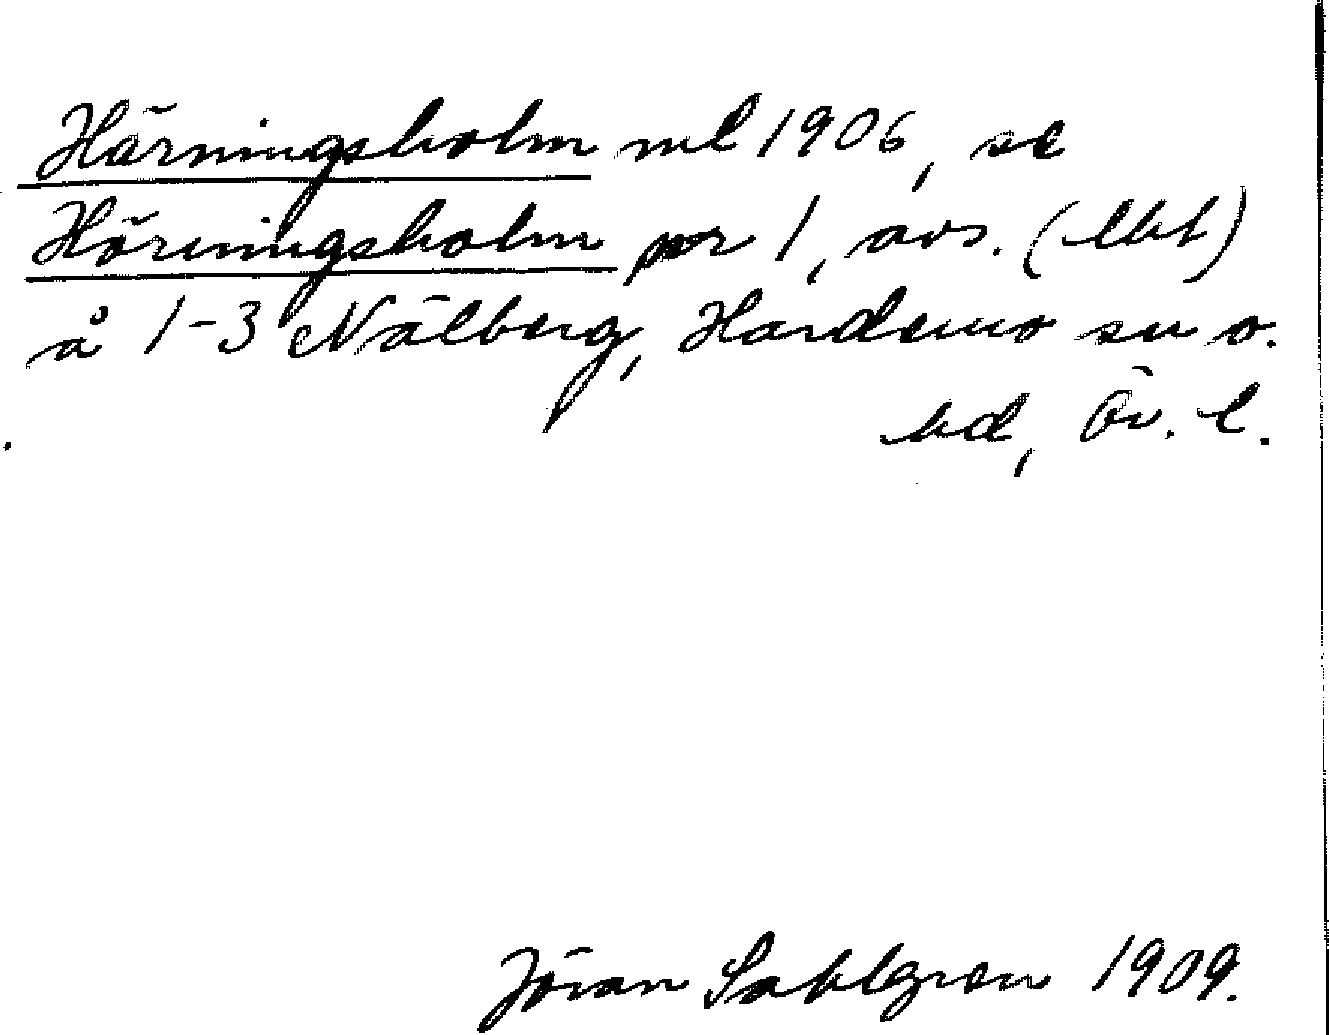 Härningsholm ml 1906, se
Hörningsholm pr 1, avs. (lht)
å 1-3 Nälberg, Hardemo sn o.
hd, Ör. l.
Jöran Sahlgren 1909.